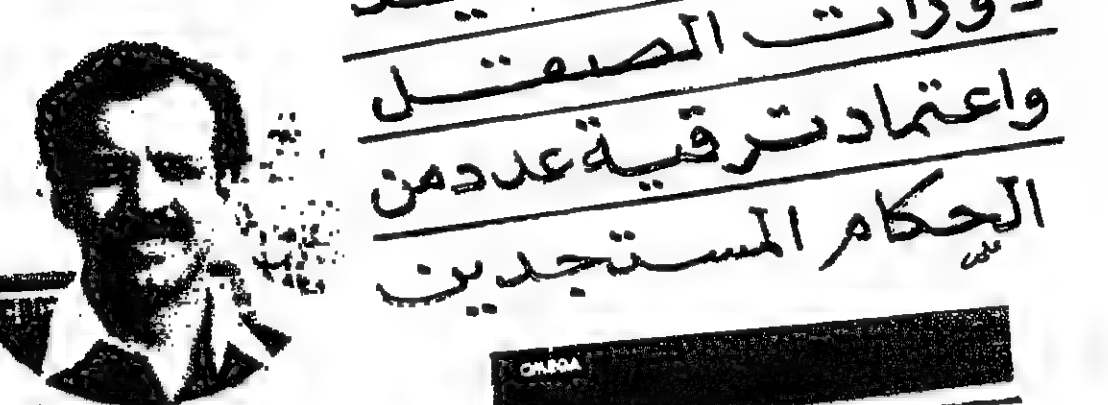 دورات الصقل
واعتماد ترقية عدد من
الحكام المستجدين
OMEGA